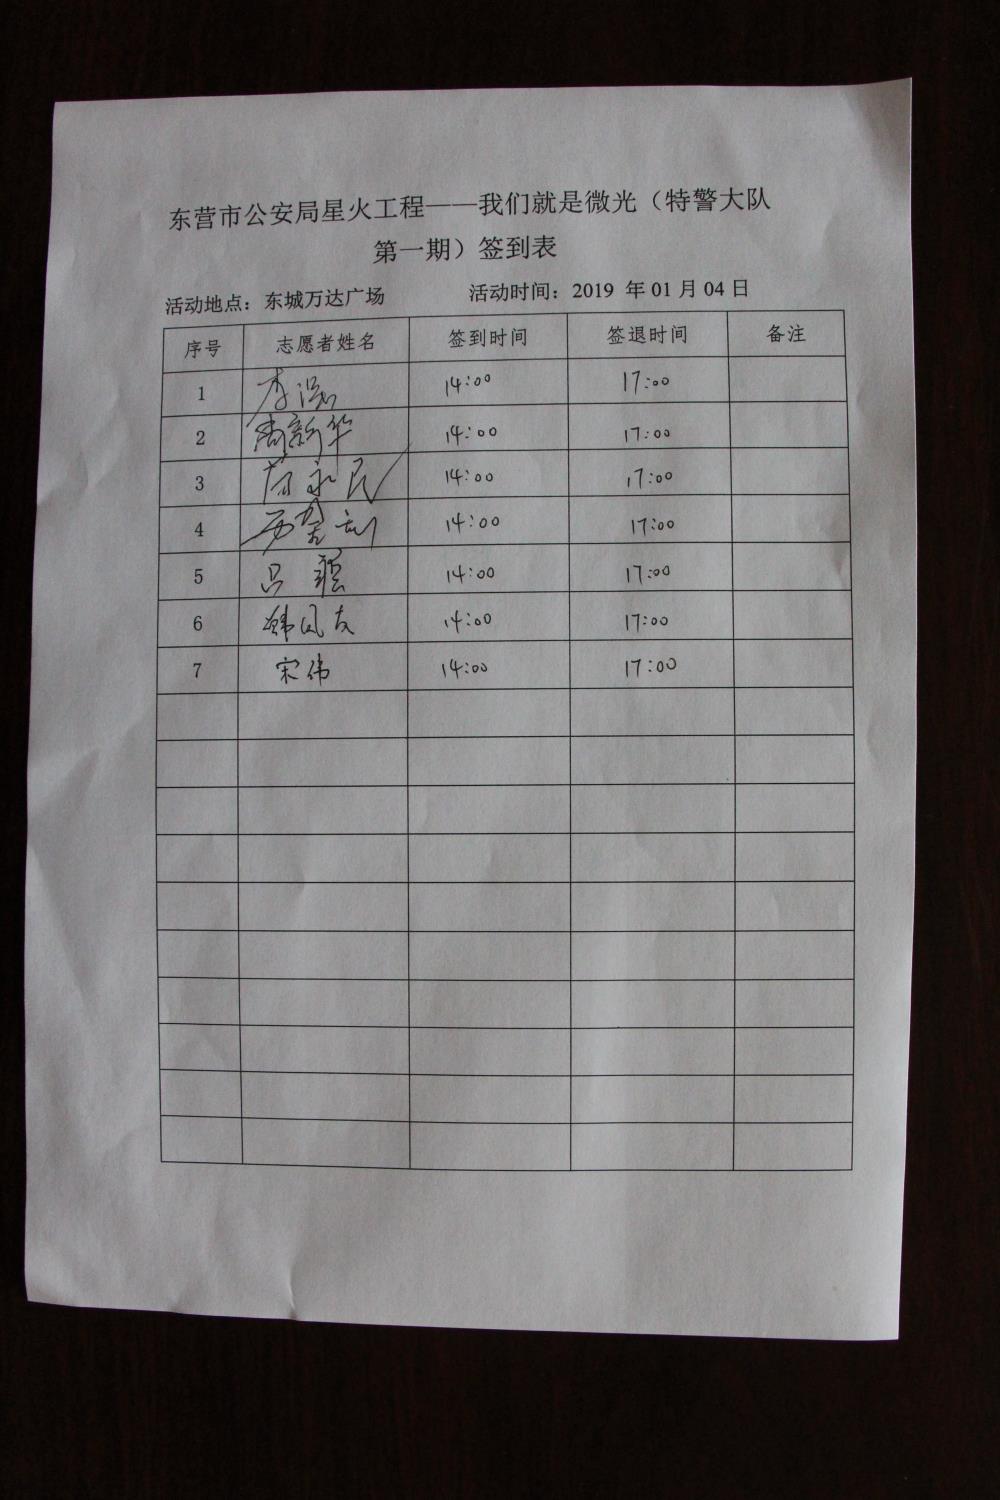 东营市公安局星火工程——我们就是微光（特警大队
第一期）签到表
活动地点：东城万达广场 活动时间：2019 年 01 月 04 日
序号 志愿者姓名 签到时间 签退时间 备注
1 李 14:00 17:00
2 新华 14:00 17:00
3 永民 14:00 17:00
4 14:00 17:00
5 吕 14:00 17:00
6 韩风友 14:00 17:00
7 宋伟 14:00 17:00